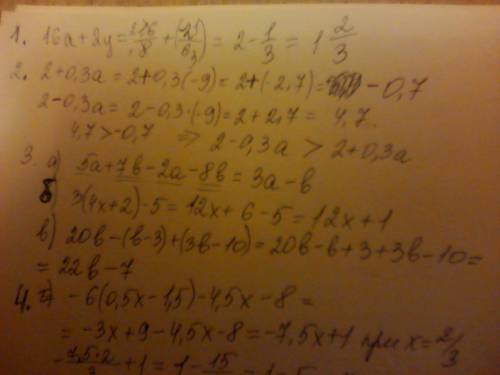 1. 16a+2y = 2·16/8 + (-2·1/6₃) = 2-1/3 = 1 2/3
2. 2+0,3a = 2+0,3(-9) = 2+(-2,7) = -0,7
2-0,3a = 2-0,3·(-9) = 2+2,7 = 4,7.
4,7>-0,7 ⇒ 2-0,3a > 2+0,3a
3. а) 5a+7b-2a-8b = 3a-b
б) 3(4x+2)-5 = 12x+6-5 = 12x+1
в) 20b-(b-3)+(3b-10) = 20b-b+3+3b-10 =
= 22b-7
4. -6(0,5x-1,5)-4,5x-8 =
= -3x+9-4,5x-8 = -7,5x+1 при x=2/3
-7,5·2/3 +1 = 1-15